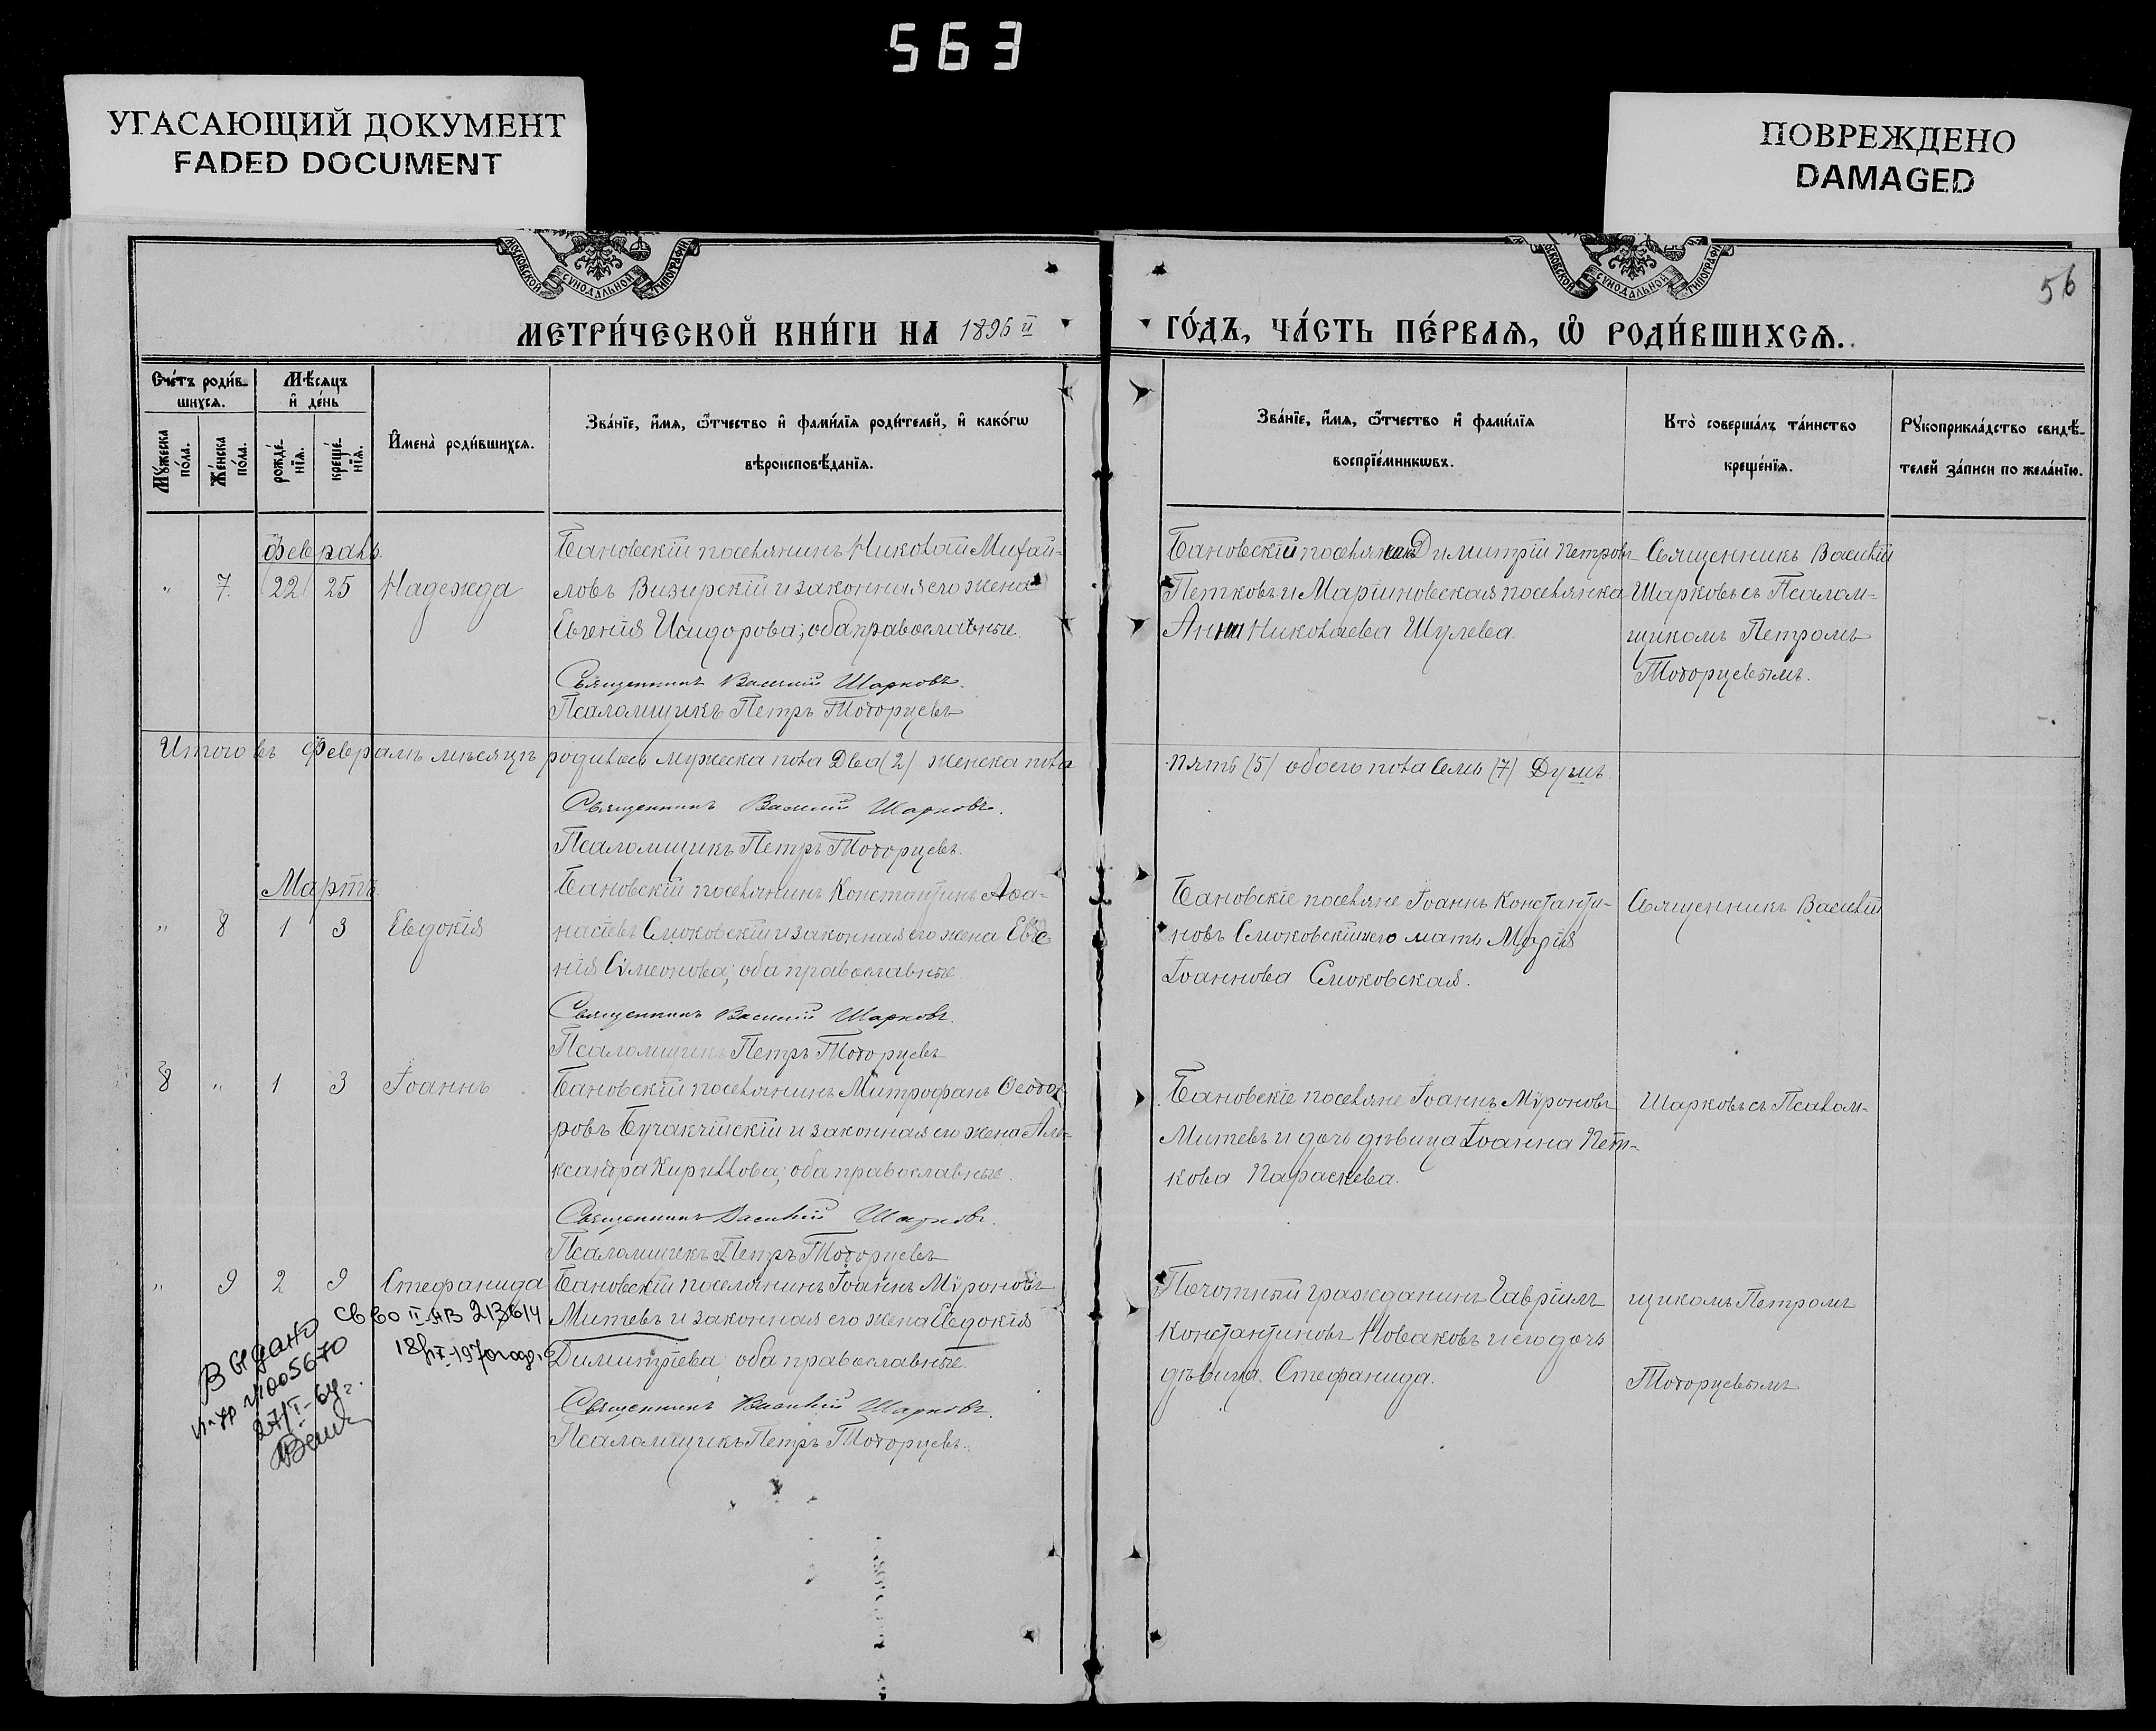 563
УГАСАЮЩИЙ ДОКУМЕНТ
FADED DOCUMENT
ПОВРЕЖДЕНО
DAMAGED
МОСКОВСКОЙ СУНОДАЛЬНОЙ ТИПОГРАФІИ
МОСКОВСКОЙ СУНОДАЛЬНОЙ ТИПОГРАФІИ
56
МЕТРИ́ЧЕСКОЙ КНИ́ГИ НА 1896 й
ГО́ДЪ, ЧА́СТЬ ПЕ́РВАѦ, Ѡ҆ РОДИ́ВШИХСѦ.
Сче́тъ роди́в-
шихся.
Мѣ́сяцъ
и҆ де́нь
Мꙋ́жеска
по́ла.
Же́нска
по́ла.
рожде́-
нїя.
креще́-
нїя.
И҆мена̀ роди́вшихся.
Зва́нїе, и҆́мя, ѻ҆́тчество и҆ фами́лїя роди́телей, и҆ како́гѡ
вѣроисповѣ́данїя.
Зва́нїе, и҆́мя, ѻ҆́тчество и҆ фами́лїя
воспрїе́мникѡвъ.
Кто̀ соверша́лъ та́инство
креще́нїя.
Рꙋкоприкла́дство свидѣ́-
телей за́писи по жела́нїю.
Февраль.
" 7 22 25 Надежда
Бановскій поселянинъ Николай Михай-
ловъ Визирскій и законная его жена
Евгенія Исидорова; оба православные.
Священникъ Василій Шарковъ.
Псаломщикъ Петръ Тодорцевъ
Бановскій поселянинъ Димитрій Петровъ
Петковъ и Маріиновская поселянка
Анна Николаева Шулева.
Священникъ Василій
Шарковъ съ Псалом-
щикомъ Петромъ
Тодорцевымъ.
Итого въ Февралѣ мѣсяцѣ родилось мужеска пола Два (2) женска пола
пять (5) обоего пола Семь (7) Душъ.
Священникъ Василій Шарковъ.
Псаломщикъ Петръ Тодорцевъ.
Мартъ.
" 8 1 3 Евдокія
Бановскій поселянинъ Константинъ Аѳа-
насіевъ Смоковскій и законная его жена Евге-
нія Сѵмеонова; оба православные.
Священникъ Василій Шарковъ.
Псаломщикъ Петръ Тодорцевъ
Бановскіе поселяне Іоаннъ Константи-
новъ Смоковскій и его мать Марія
Іоаннова Смоковская.
Священникъ Василій
8 " 1 3 Іоаннъ
Бановскій поселянинъ Митрофанъ Ѳеодо-
ровъ Бучакчійскій и законная его жена Але-
ксандра Кириллова; оба православные.
Священникъ Василій Шарковъ.
Псаломщикъ Петръ Тодорцевъ
Бановскіе поселяне Іоаннъ Мѵроновъ
Митевъ и дочь дѣвица Іоанна Пет-
кова Параскева.
Шарковъ съ Псалом-
" 9 2 9 Стефанида
Бановскій поселянинъ Іоаннъ Мѵроновъ
Митевъ и законная его жена Евдокія
Димитріева; оба православные.
Священникъ Василій Шарковъ.
Псаломщикъ Петръ Тодорцевъ.
Почотный гражданинъ Гавріилъ
Константиновъ Новаковъ и его дочь
дѣвица Стефанида.
щикомъ Петромъ
Тодорцевымъ
Выдано св во
005670